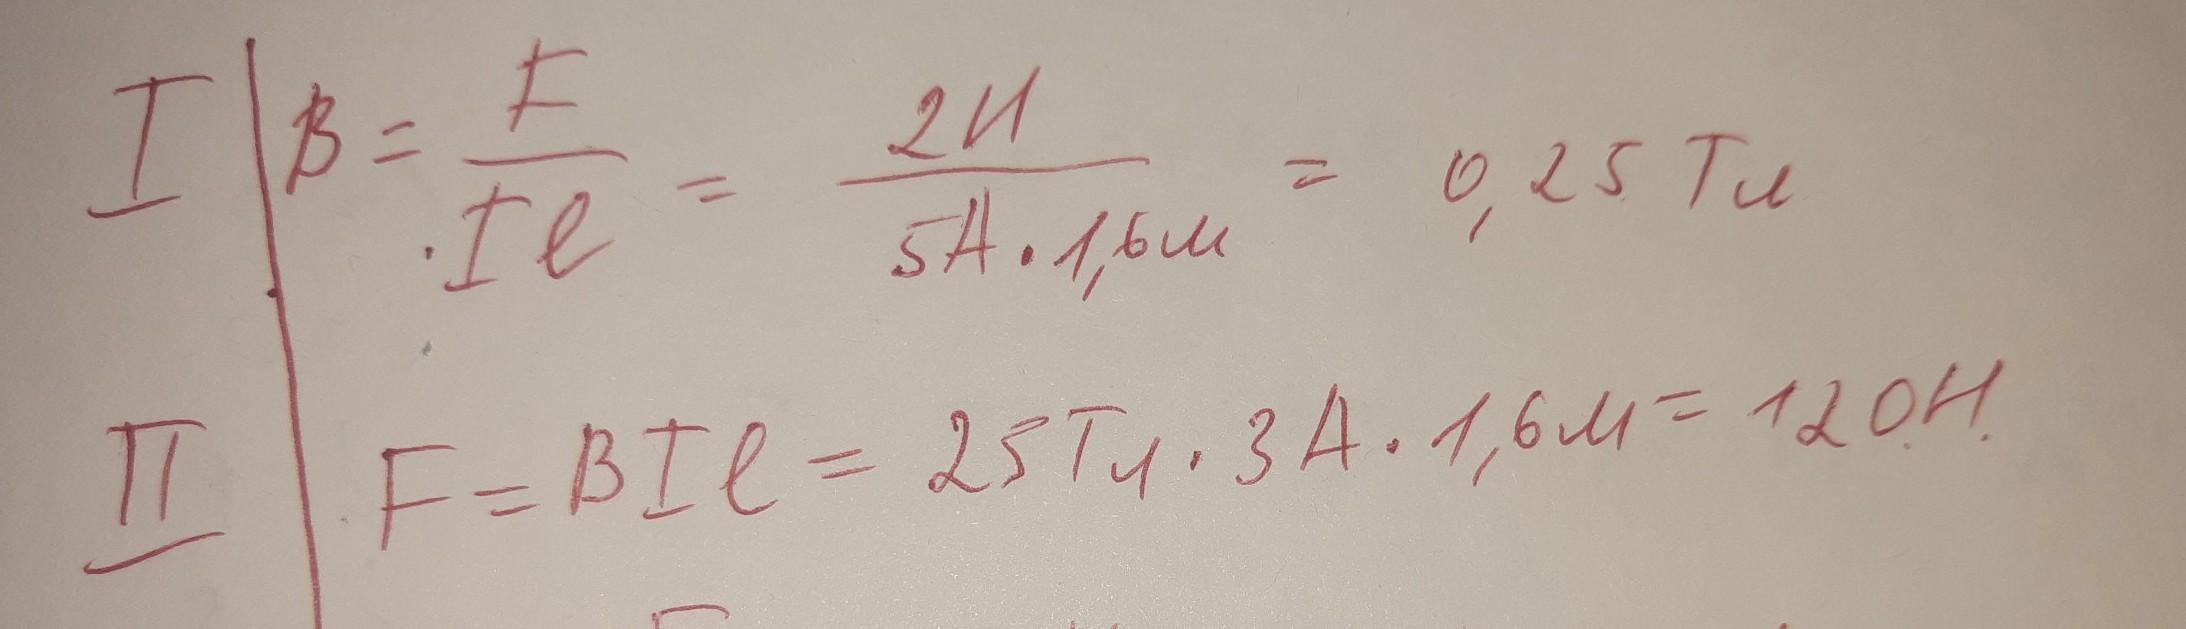 I | B = F / Iℓ = 2Н / 5А · 1,6м = 0,25 Тл
II | F = BIℓ = 25Тл · 3А · 1,6м = 120Н.